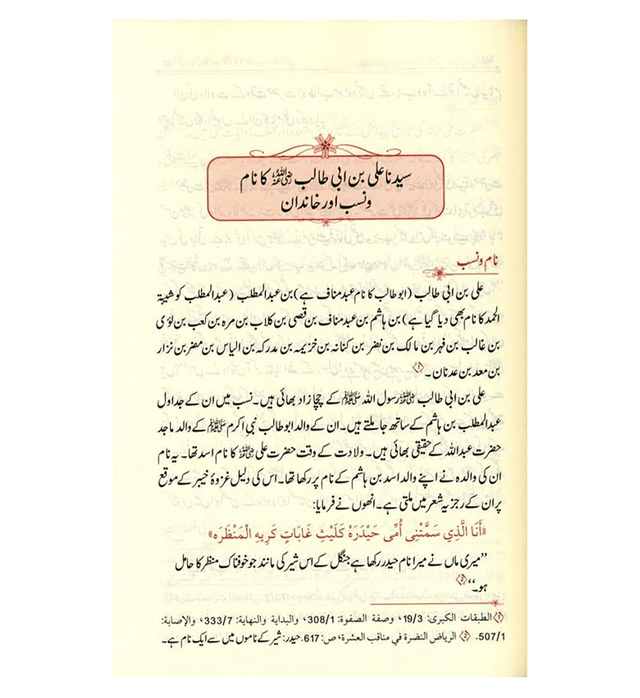 سیدنا علی بن ابی طالب رضی اللہ عنہ کا نام
و نسب اور خاندان
نام و نسب
علی بن ابی طالب (ابو طالب کا نام عبد مناف ہے) بن عبدالمطلب (عبدالمطلب کو شیبۃ
الحمد کا نام بھی دیا گیا ہے) بن ہاشم بن عبد مناف بن قصی بن کلاب بن مرہ بن کعب بن لؤی
بن غالب بن فہر بن مالک بن نضر بن کنانہ بن خزیمہ بن مدرکہ بن الیاس بن مضر بن نزار
بن معد بن عدنان۔ ①
علی بن ابی طالب رضی اللہ عنہ رسول اللہ ﷺ کے چچا زاد بھائی ہیں۔ نسب میں ان کے جد اول
عبدالمطلب بن ہاشم کے ساتھ جا ملتے ہیں۔ ان کے والد ابو طالب نبی اکرم ﷺ کے والد ماجد
حضرت عبداللہ کے حقیقی بھائی ہیں۔ ولادت کے وقت حضرت علی رضی اللہ عنہ کا نام اسد تھا۔ یہ نام
ان کی والدہ نے اپنے والد اسد بن ہاشم کے نام پر رکھا تھا۔ اس کی دلیل غزوۂ خیبر کے موقع
پر ان کے رجزیہ شعر میں ملتی ہے۔ انھوں نے فرمایا:
«أَنَا الَّذِي سَمَّتْنِي أُمِّي حَيْدَرَهْ كَلَيْثِ غَابَاتٍ كَرِيهِ الْمَنْظَرَه»
’’میری ماں نے میرا نام حیدر رکھا ہے جنگل کے اس شیر کی مانند جو خوفناک منظر کا حامل
ہو۔‘‘ ②
① الطبقات الكبرى: 19/3، وصفة الصفوة: 308/1، والبداية والنهاية: 333/7، والإصابة:
507/1. ② الرياض النضرة في مناقب العشرة، ص: 617. حیدر: شیر کے ناموں میں سے ایک نام ہے۔